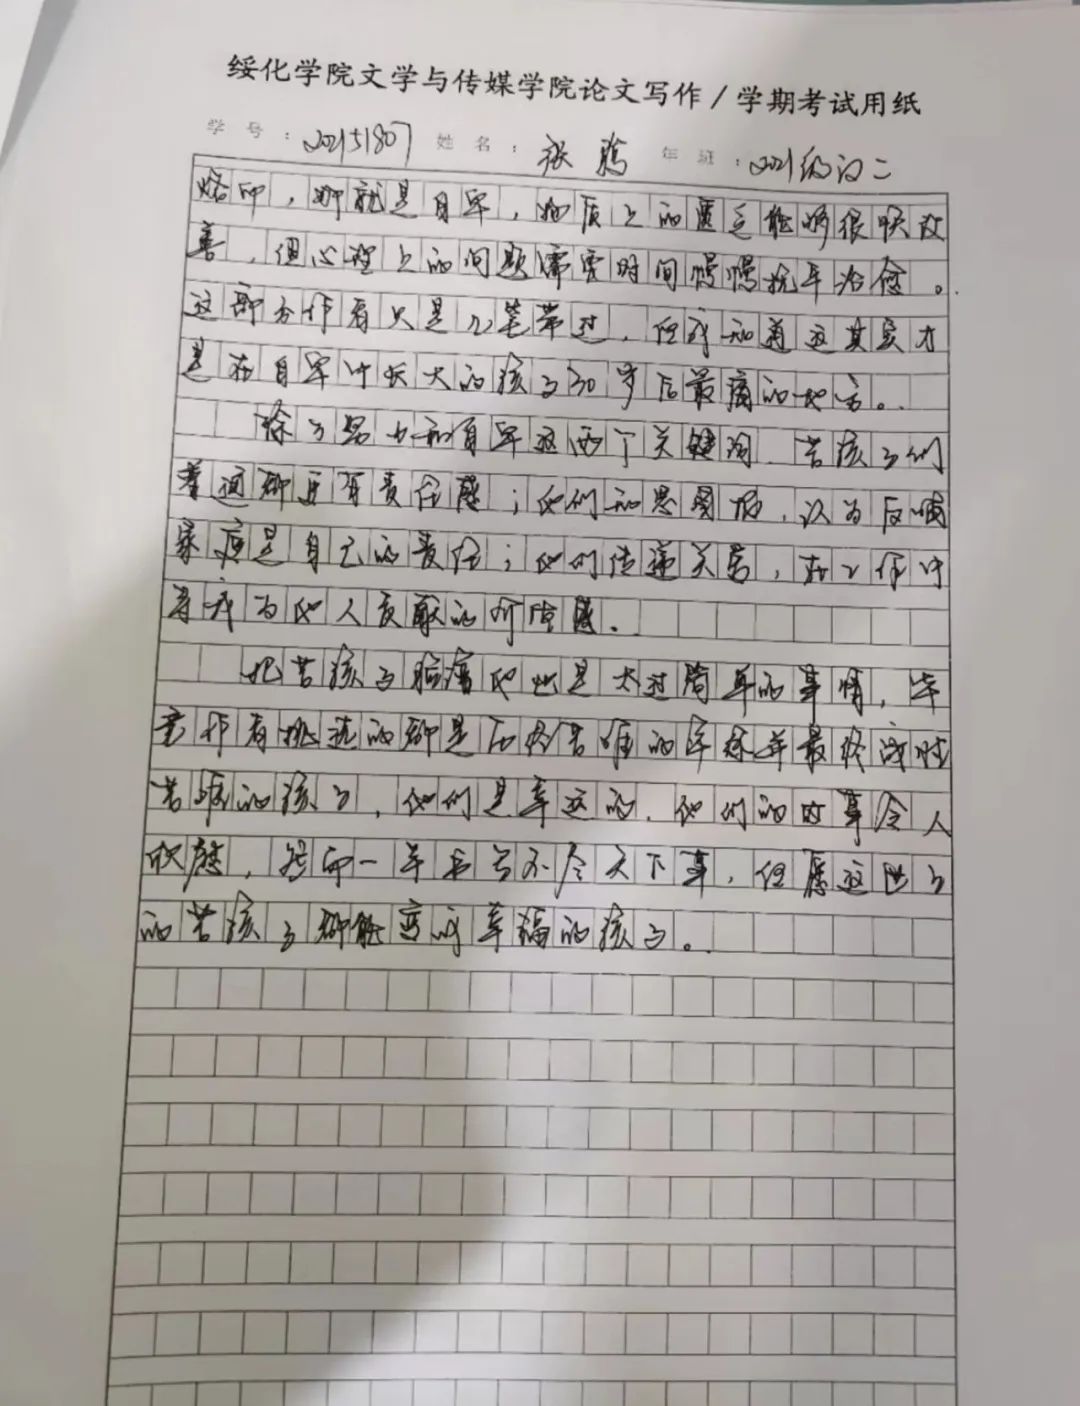 绥化学院文学与传媒学院论文写作/学期考试用纸
学号：202151807 姓名：张 年班：2021级汉二
烙印，那就是自卑，物质上的匮乏能够很快改
善，但心理上的问题需要时间慢慢抚平治愈。
这部分作者只是几笔带过，但我知道这其实才
是在自卑中长大的孩子30岁后最痛的地方。
除了努力和自卑这两个关键词，苦孩子们
普遍都更有责任感；他们知恩图报，认为反哺
家庭是自己的责任；他们传递关爱，在工作中
寻找为他人贡献的价值感。
把苦孩子脸谱化也是太过简单的事情，毕
竟作者挑选的都是历经苦难的年经年最终战胜
苦难的孩子，他们是幸运的，他们的故事令人
欣慰，然而一年去写不尽天下事，但愿这世间
的苦孩子都能变成幸福的孩子。